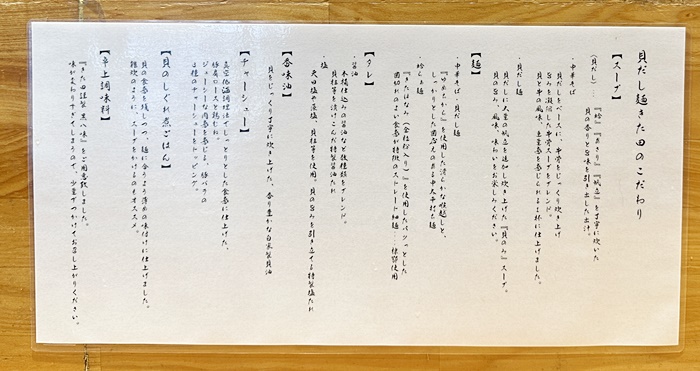 貝だし麺きた田のこだわり
【スープ】
（貝だし）…『蛤』『あさり』『帆立』を丁寧に炊いた
貝の香りと旨味を引き出した出汁。
・中華そば
貝だしベースに、牛骨をじっくり炊き上げ
旨みを凝縮した牛骨スープをブレンド。
貝と牛の風味、重量感を感じられる一杯に仕上げました。
・貝だし麺
貝だしに大量の帆立を追加し炊き上げた『貝のみ』スープ。
貝の旨み、風味、味わいをお楽しみください。
【麺】
・中華そば・貝だし麺
『ゆめちから』を使用した滑らかな喉越しと、
しっかりとした歯応えのある中太平打ち麺
『きたほなみ（全粒粉入り）』を使用したパツっとした
歯切れのよい食感が特徴のストレート細麺
【タレ】
・醤油
木桶仕込みの醤油など数種類をブレンド。
貝柱等を漬けこんだ特製醤油だれ
・塩
天日塩や藻塩、貝柱等を使用。貝の旨みを引き立てる特製塩だれ
【香味油】
貝をじっくり丁寧に炊き上げた、香り豊かな自家製貝油
【チャーシュー】
真空低温調理法でしっとりとした食感に仕上げた、
ジューシーな肉感を感じる、豚バラの
2種のチャーシューをトッピング。
【貝のしぐれ煮ごはん】
貝の食感を残しつつ、麺に合うよう薄めの味付けに仕上げました。
雑炊のように、スープをかけるのもオススメ。
【卓上調味料】
『きた田謹製 黒八味』をご用意致しました。
味がかわりすぎてしまうので、少量ずつかけてお召し上がりください。